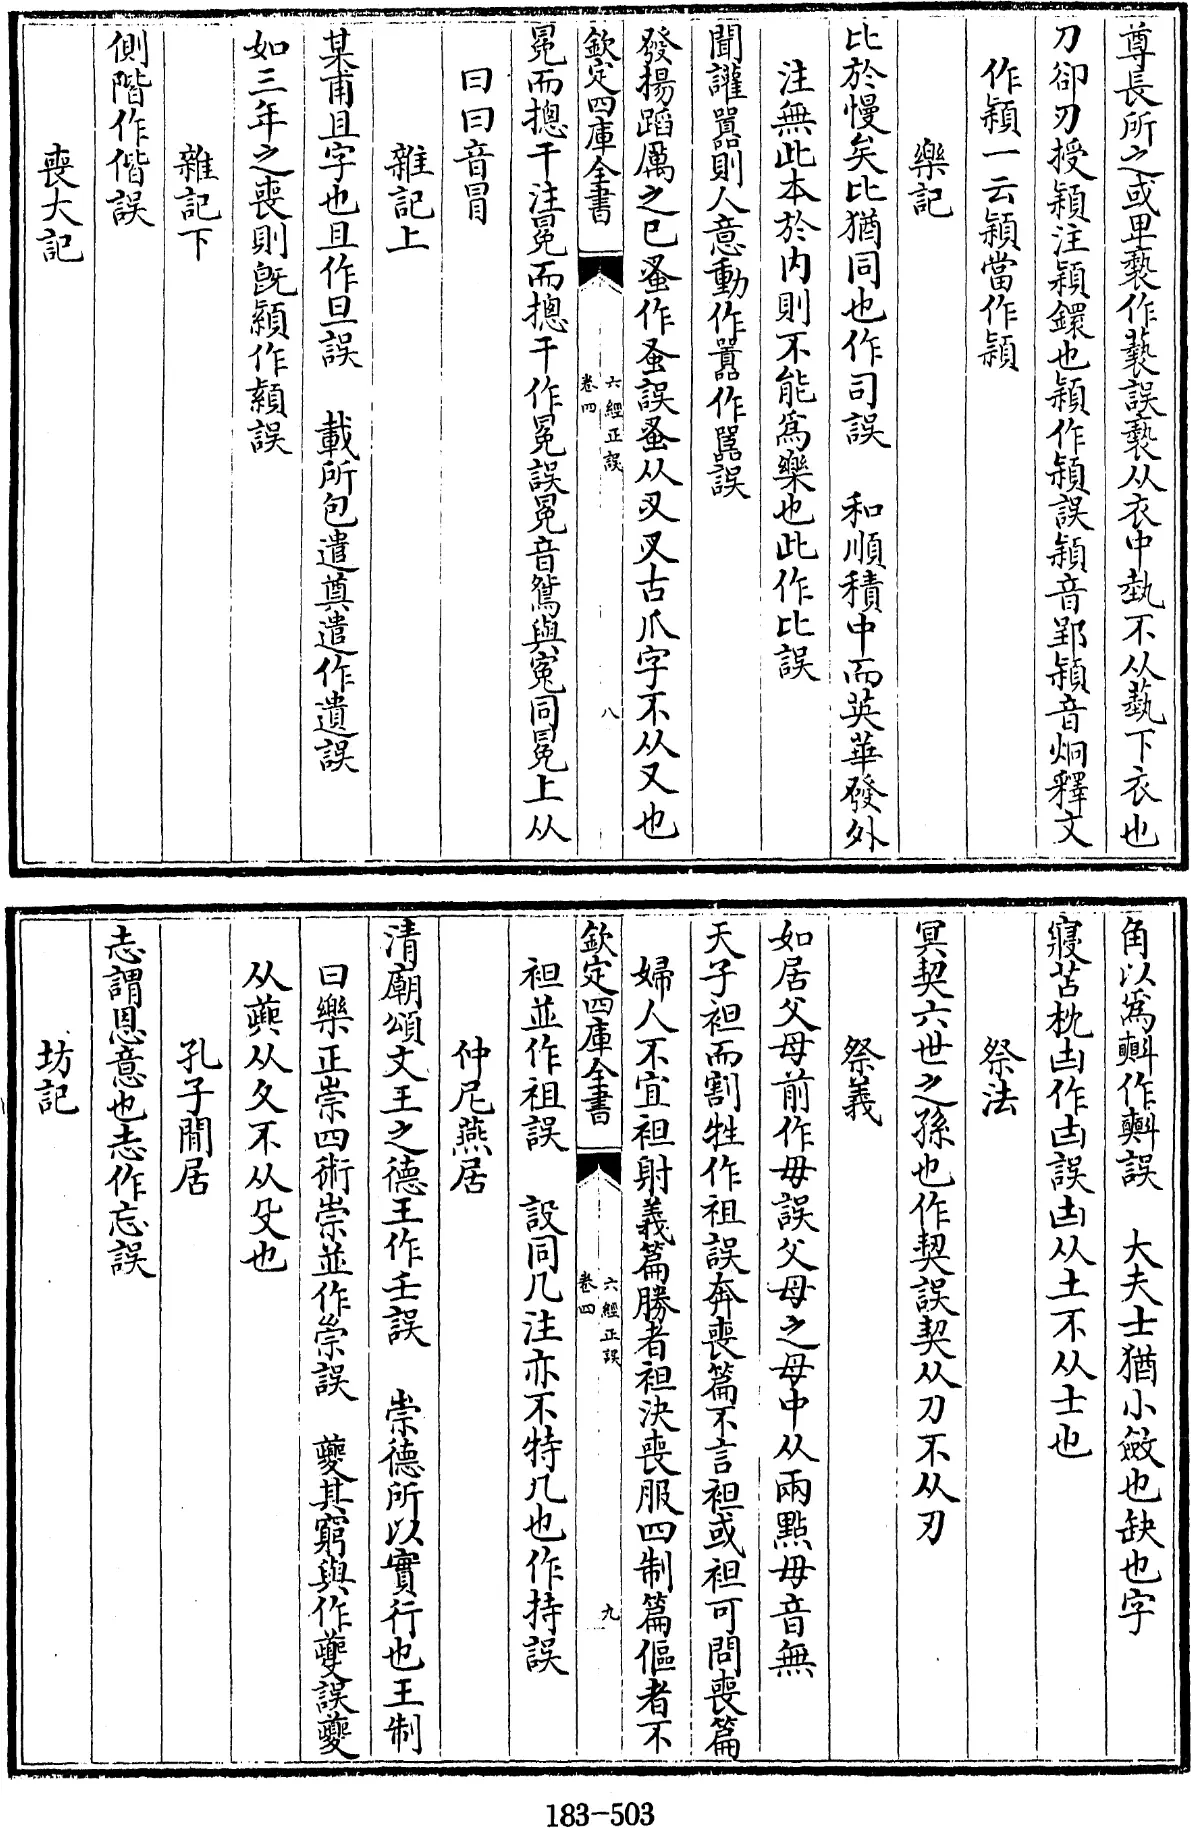 尊長所之或卑褻作䙝誤褻从衣中埶不从蓺下衣也
刀卻刃授穎注穎鐶也穎作頴誤穎音郢熲音炯釋文
作穎一云頴當作穎
樂記
比於慢矣比猶同也作司誤　和順積中而英華發外
注無此本於内則不能爲樂也此作比誤
聞讙嚚則人意動作嚻作囂誤
發揚蹈厲之已蚤作蚤誤蚤从叉叉古爪字不从又也
欽定四庫全書
六經正誤
卷四
八
冕而揔干注冕而揔干作冕誤冤音鴛與寃同冕上从
曰曰音冒
雜記上
某甫且字也且作旦誤　載所包遣奠遣作遺誤
如三年之喪則既顈作顈誤
雜記下
側階作偕誤
喪大記
角以爲㪷作㪷誤　大夫士猶小斂也缺也字
寢苫枕凷作凷誤凷从土不从士也
祭法
冥契六世之孫也作契誤契从刀不从刃
祭義
如居父母前作毋誤父母之母中从兩點毋音無
天子袒而割牲作袓誤奔喪篇不言袒或袒可問喪篇
婦人不宜袒射義篇勝者袒決喪服四制篇傴者不
欽定四庫全書
六經正誤
卷四
九
袒並作祖誤　設同几注亦不特几也作持誤
仲尼燕居
清廟頌文王之德王作壬誤　崇德所以實行也王制
曰樂正崇四術崇並作崈誤　夔其窮與作䕫誤夔
从䕫从夂不从攵也
孔子閒居
志謂恩意也志作忘誤
坊記
183-503